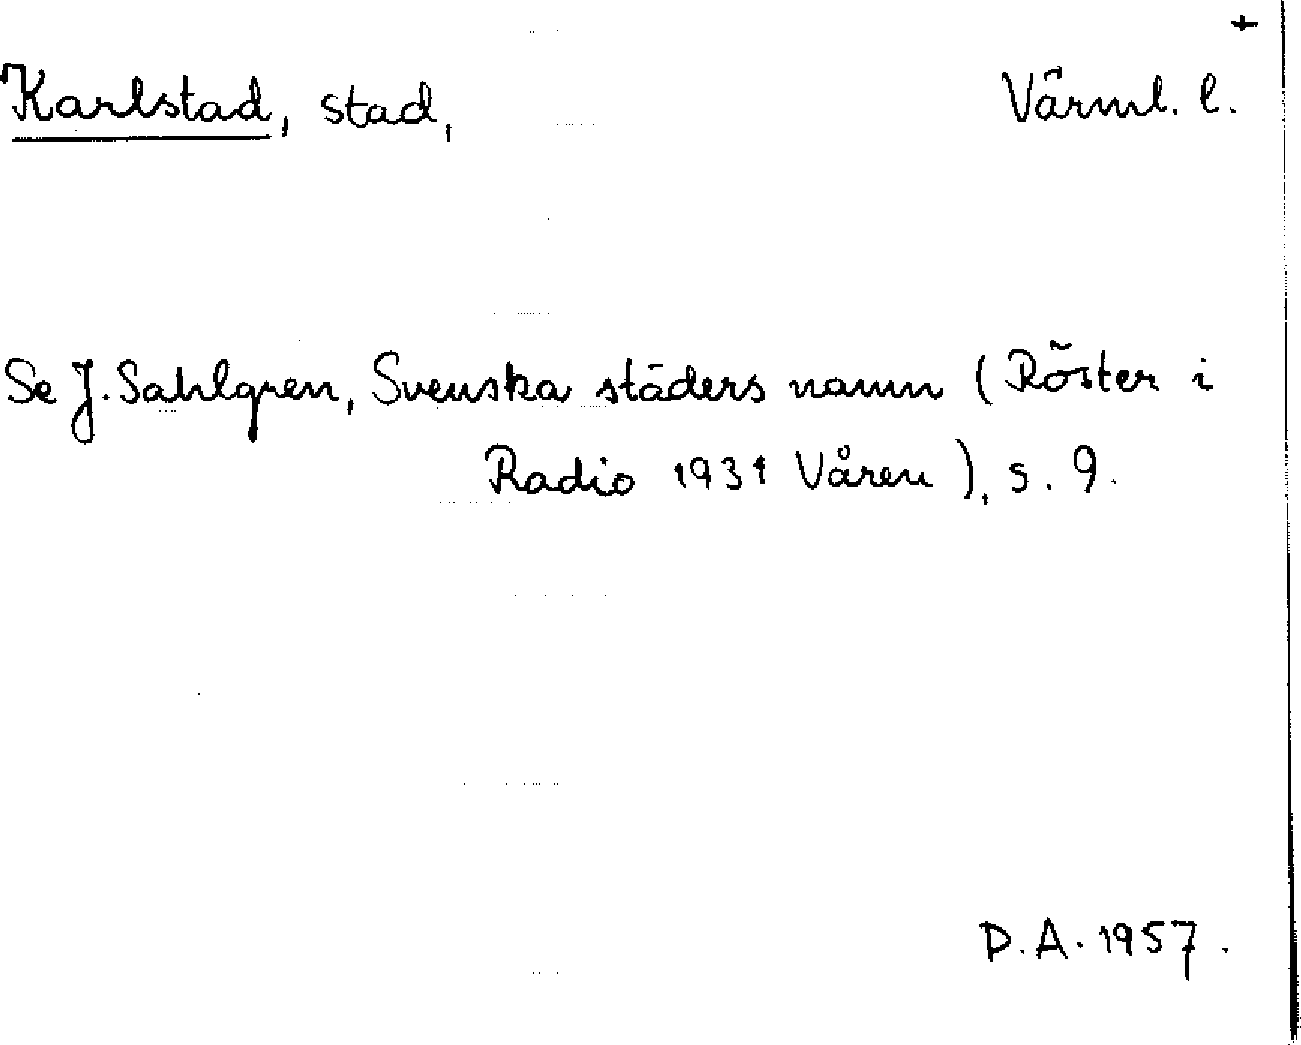 +
Karlstad, stad, Värml. l.
Se J. Sahlgren, Svenska städers namn (Röster i
Radio 1931 Våren), s. 9.
D.A. 1957.